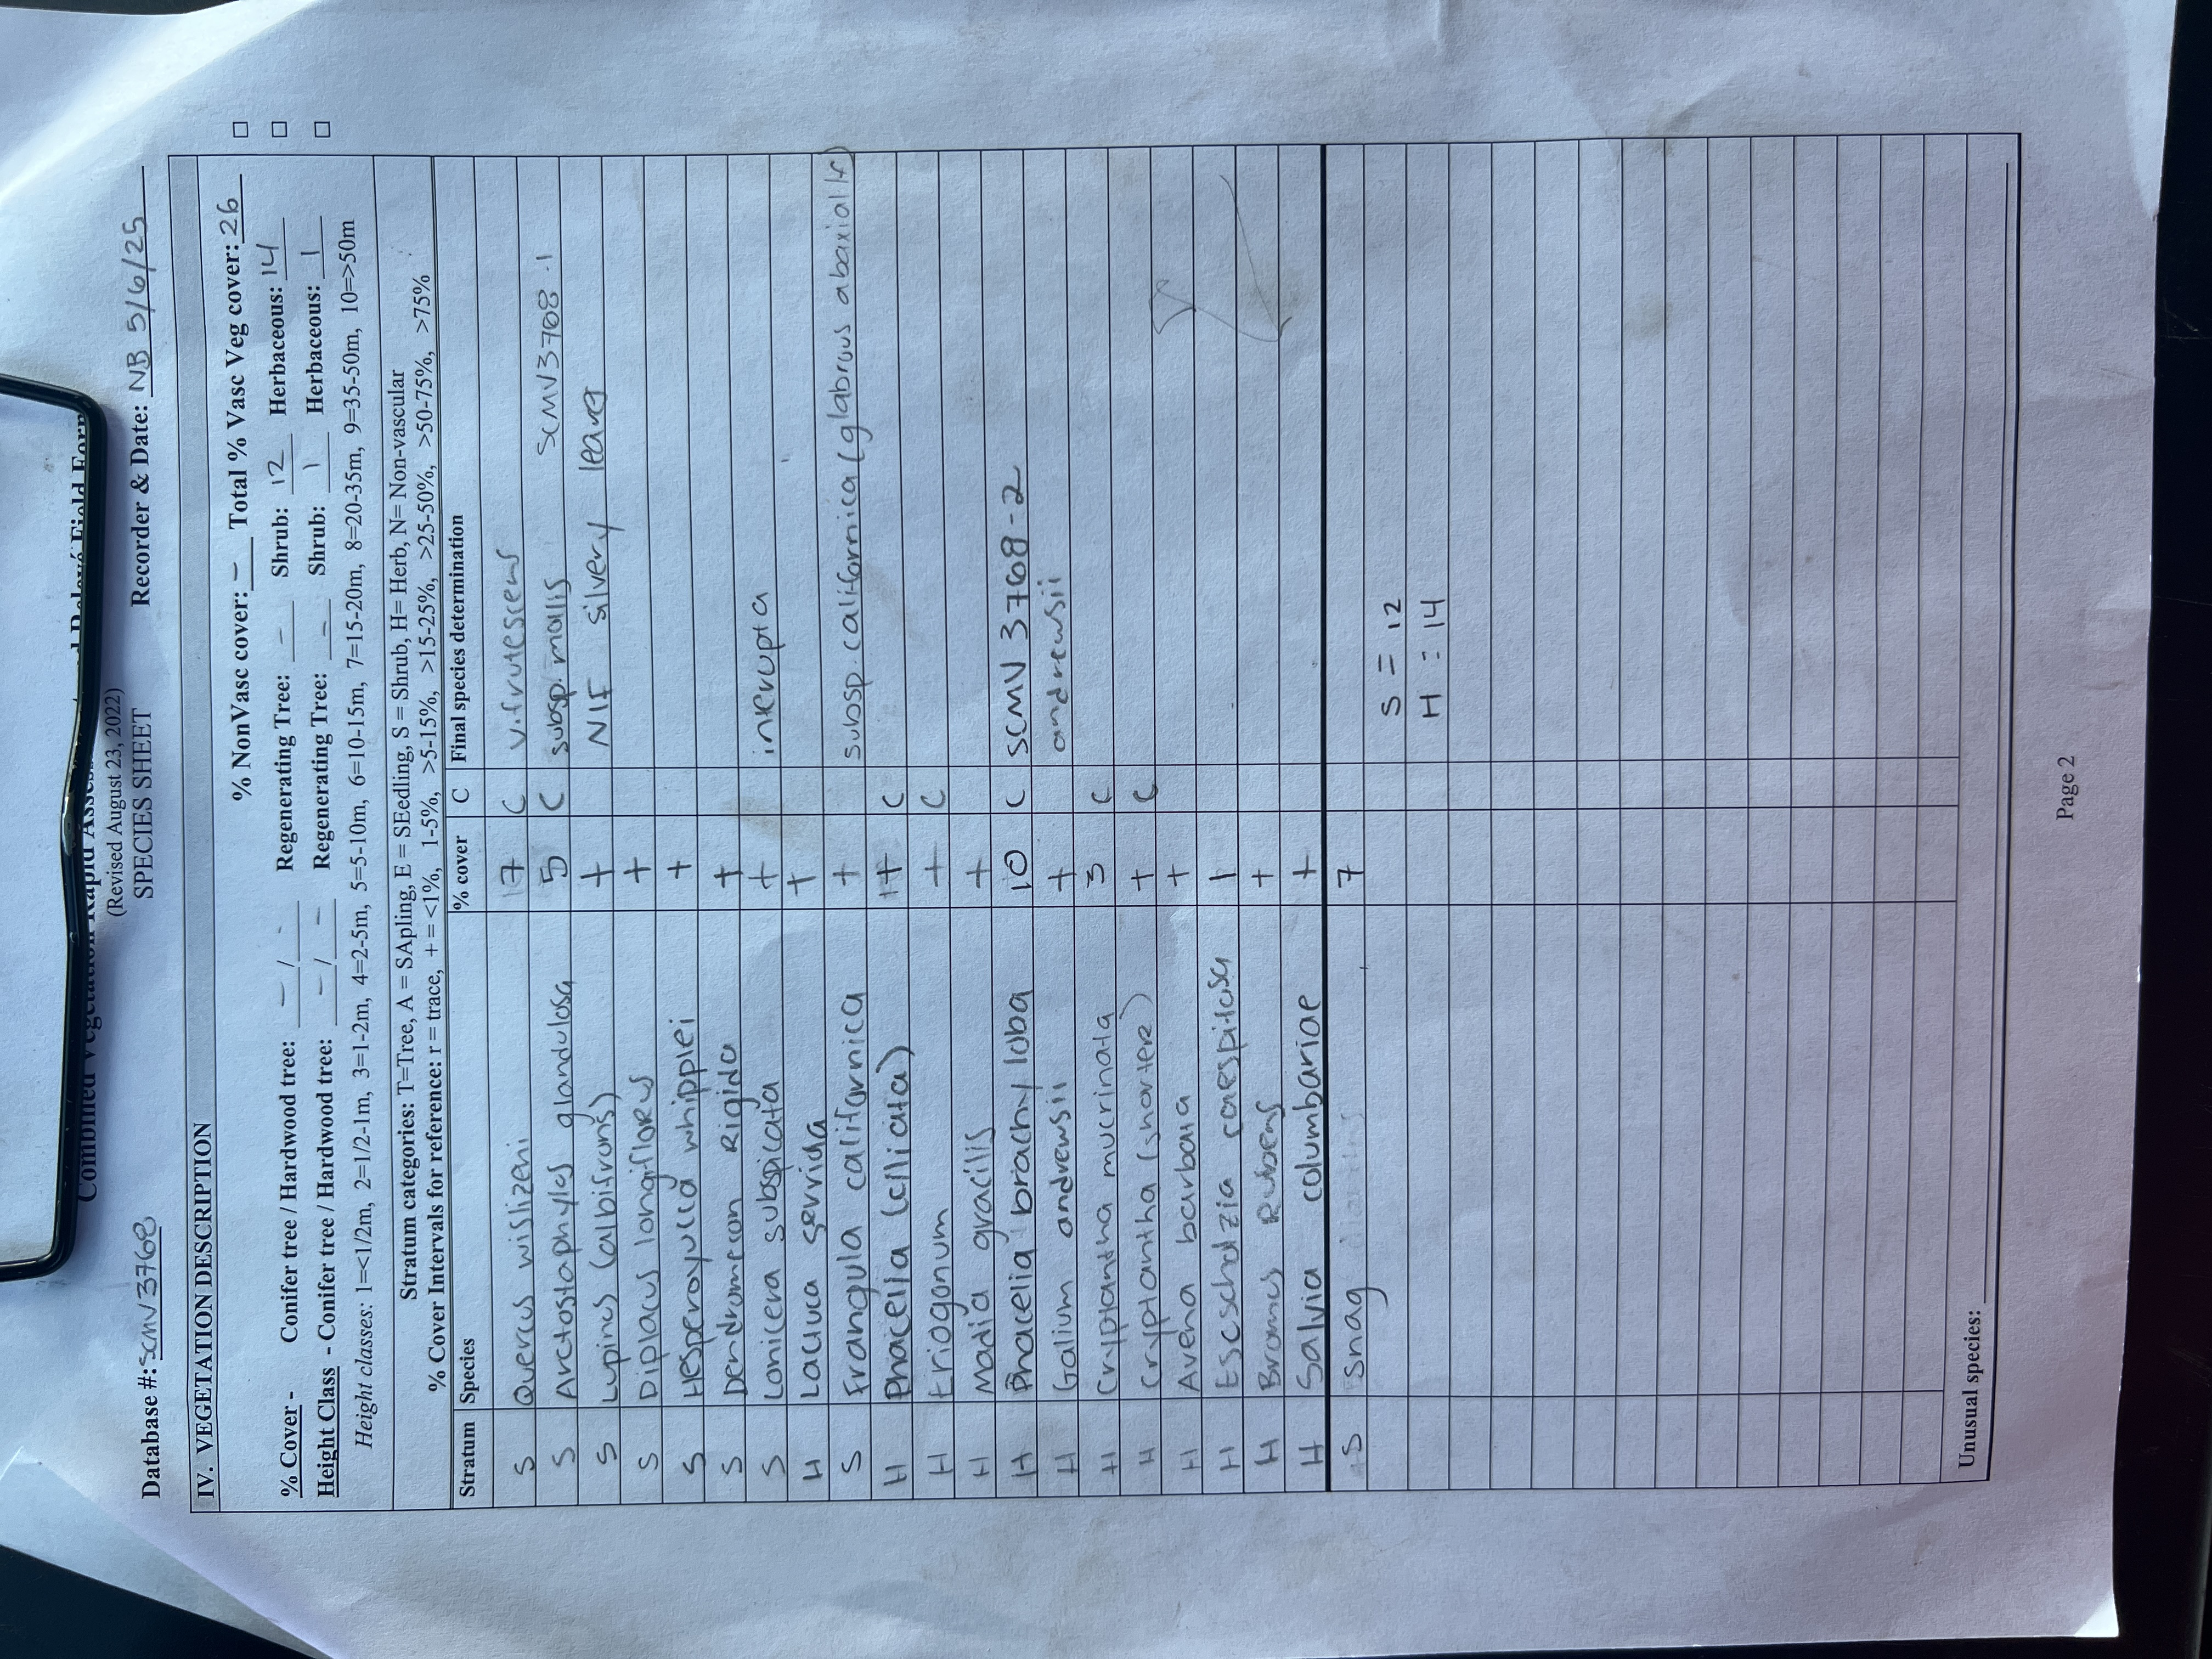 Combined Vegetation Rapid Assess and Relevé Field Form
(Revised August 23, 2022)
Database #: SCMV3768 SPECIES SHEET Recorder & Date: NB 5/6/25
IV. VEGETATION DESCRIPTION
% NonVasc cover: – Total % Vasc Veg cover: 26 □
% Cover - Conifer tree / Hardwood tree: – / - Regenerating Tree: – Shrub: 12 Herbaceous: 14 □
Height Class - Conifer tree / Hardwood tree: – / – Regenerating Tree: – Shrub: 1 Herbaceous: 1 □
Height classes: 1=<1/2m, 2=1/2-1m, 3=1-2m, 4=2-5m, 5=5-10m, 6=10-15m, 7=15-20m, 8=20-35m, 9=35-50m, 10=>50m
Stratum categories: T=Tree, A = SApling, E = SEedling, S = Shrub, H= Herb, N= Non-vascular
% Cover Intervals for reference: r = trace, + = <1%, 1-5%, >5-15%, >15-25%, >25-50%, >50-75%, >75%
Stratum Species % cover C Final species determination
S Quercus wislizeni 7 C v. frutescens
S Arctostaphylos glandulosa 5 C subsp. mollis SCMV3768.1
S Lupinus (albifrons) + NIF silvery leaves
S Diplacus longiflorus +
S Hesperoyucca whipplei +
S Dendromecon Rigida +
S Lonicera subspicata + interupta
H Lacuca serriola +
S Frangula californica + subsp. californica (glabrous abaxially)
H Phacelia (cilicata) 1+ C
H Eriogonum + C
H Madia gracilis +
H Phacelia brachyloba 10 C SCMV 3768-2
H Galium andrewsii + andrewsii
H Cryptantha mucrinata 3 C
H Cryptantha (shorter) + C
H Avena barbata +
H Escscholzia caespitosa 1
H Bromus Rubens +
H Salvia columbariae +
S snag 7
S = 12
H : 14
Unusual species:
Page 2